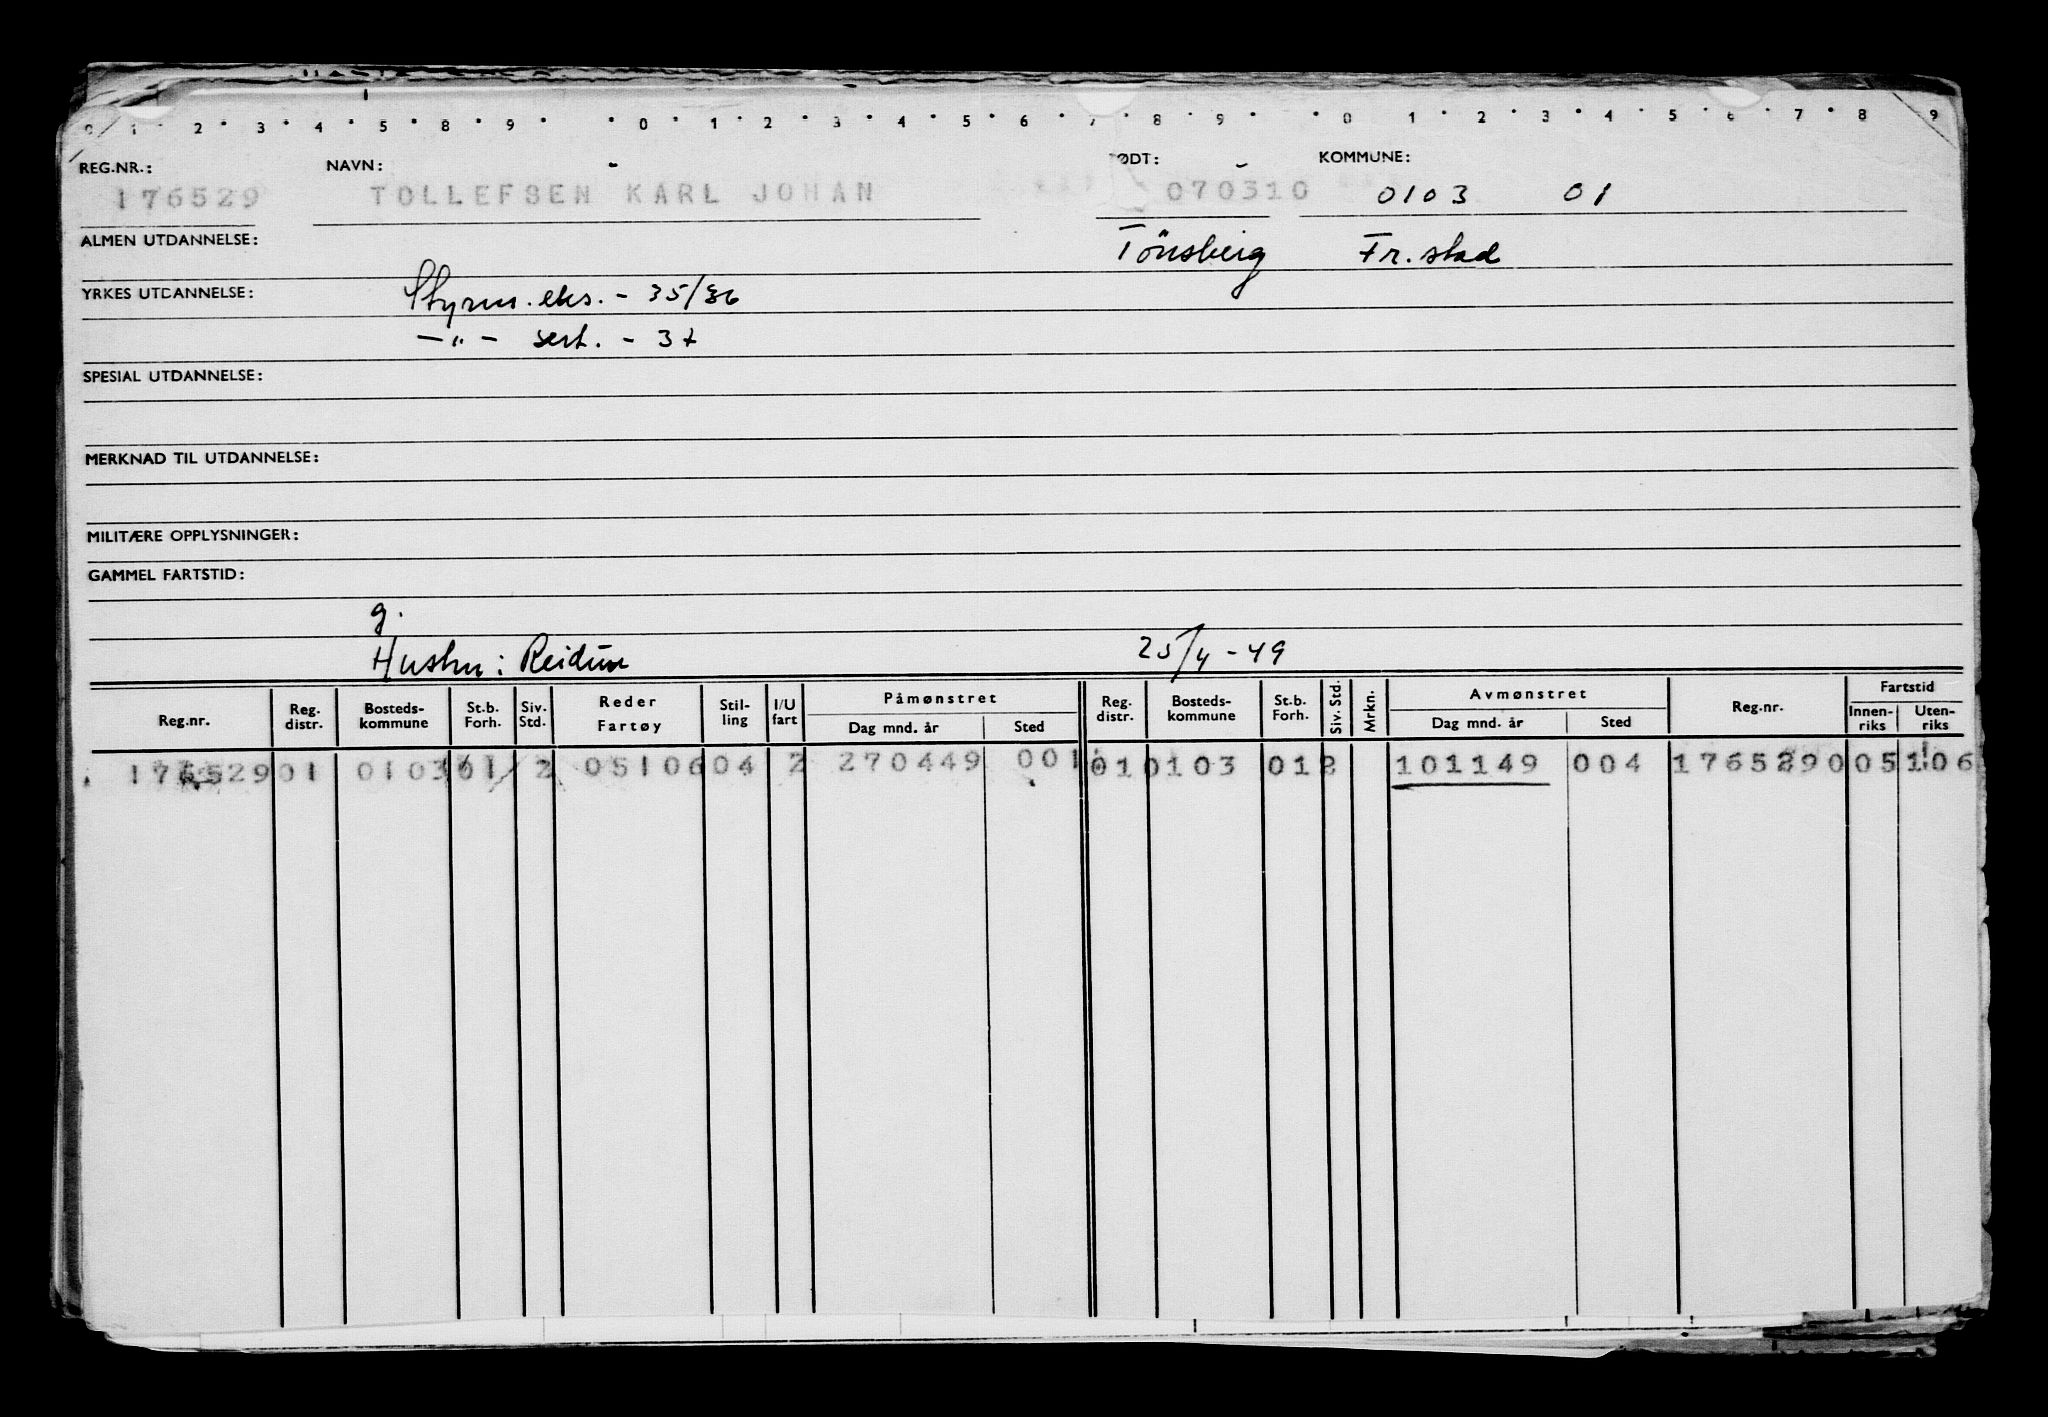 0 1 2 3 4 5 8 9 0 1 2 3 4 5 6 7 8 9 0 1 2 3 4 5 6 7 8 9
REG.NR.: NAVN: FØDT: KOMMUNE:
176529 TOLLEFSEN KARL JOHAN 070310 0103 01
ALMEN UTDANNELSE: Tönsberg Fr.stad
YRKES UTDANNELSE: Styrm. eks. - 35/36
—"— sert. - 37
SPESIAL UTDANNELSE:
MERKNAD TIL UTDANNELSE:
MILITÆRE OPPLYSNINGER:
GAMMEL FARTSTID:
g.
Hustru: Reidun 25/4-49
Reg.nr. Reg. distr. Bosteds-kommune St.b. Forh. Siv. Std. Reder Fartøy Stil-ling I/U fart Påmønstret Dag mnd. år Sted Reg. distr. Bosteds-kommune St.b. Forh. Siv. Std. Mrkn. Avmønstret Dag mnd. år Sted Reg.nr. Fartstid Innen-riks Uten-riks
176529 01 0103 01 2 05106 04 2 270449 001 01 0103 01 2 101149 004 176529 0005 106